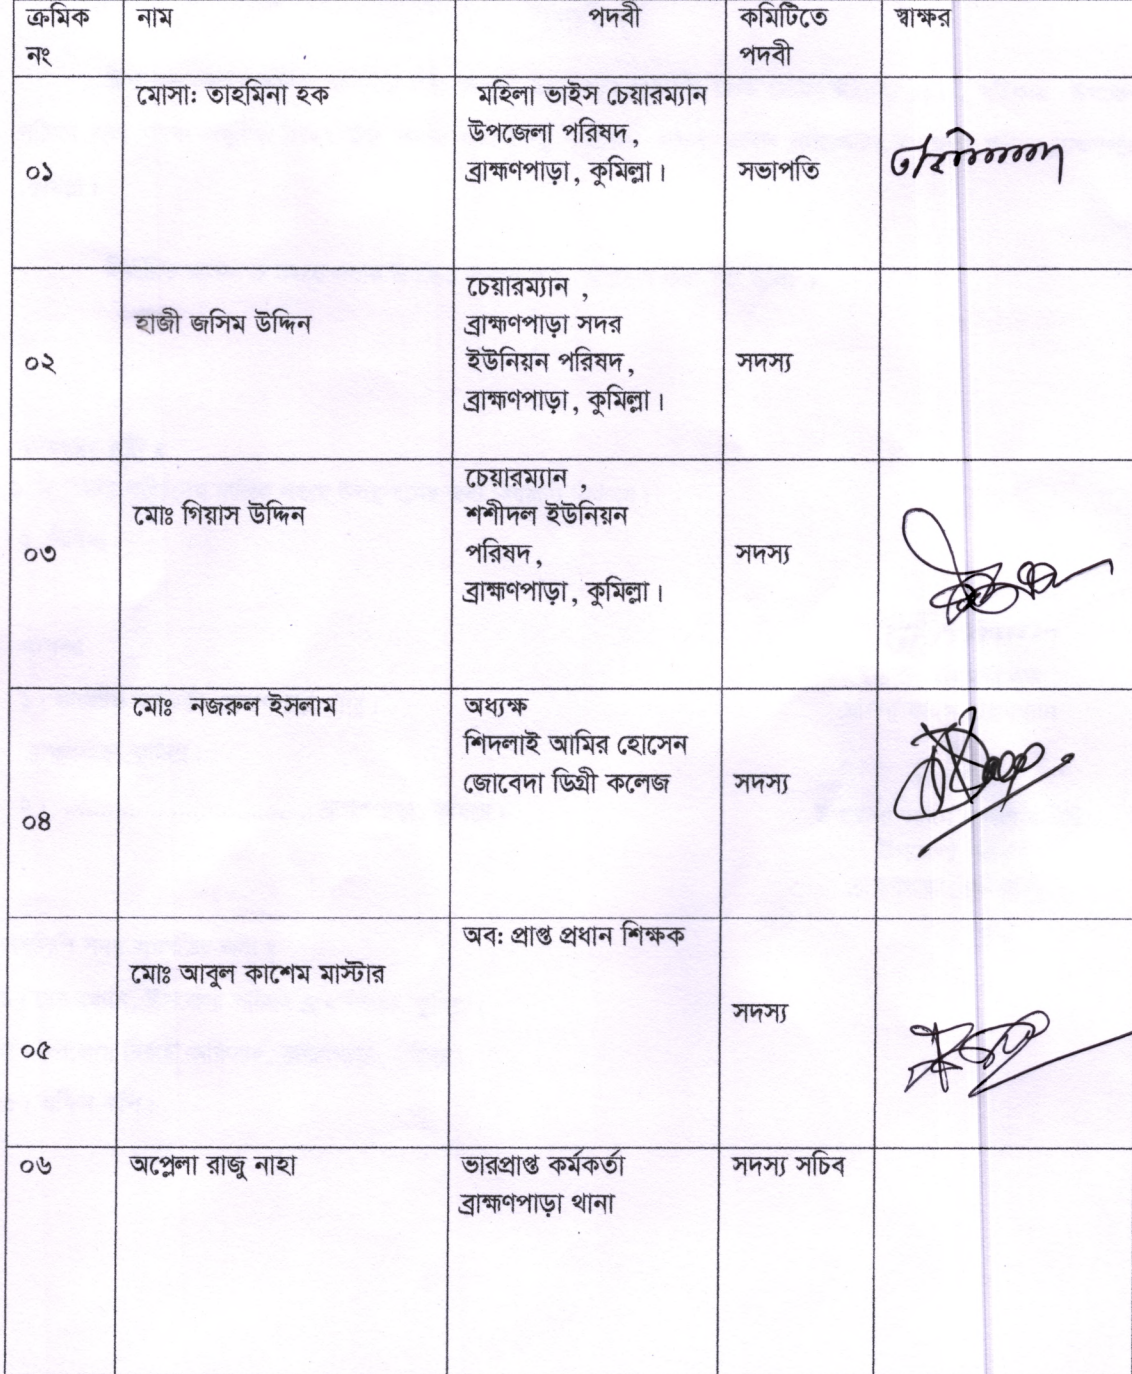 ক্রমিক নং নাম পদবী কমিটিতে পদবী স্বাক্ষর
০১
মোসা: তাহমিনা হক
মহিলা ভাইস চেয়ারম্যান
উপজেলা পরিষদ,
ব্রাহ্মণপাড়া, কুমিল্লা।
সভাপতি
০২
হাজী জসিম উদ্দিন
চেয়ারম্যান ,
ব্রাহ্মণপাড়া সদর
ইউনিয়ন পরিষদ,
ব্রাহ্মণপাড়া, কুমিল্লা।
সদস্য
০৩
মোঃ গিয়াস উদ্দিন
চেয়ারম্যান ,
শশীদল ইউনিয়ন
পরিষদ,
ব্রাহ্মণপাড়া, কুমিল্লা।
সদস্য
০৪
মোঃ নজরুল ইসলাম
অধ্যক্ষ
শিদলাই আমির হোসেন
জোবেদা ডিগ্রী কলেজ
সদস্য
০৫
মোঃ আবুল কাশেম মাস্টার
অব: প্রাপ্ত প্রধান শিক্ষক
সদস্য
০৬
অপ্পেলা রাজু নাহা
ভারপ্রাপ্ত কর্মকর্তা
ব্রাহ্মণপাড়া থানা
সদস্য সচিব